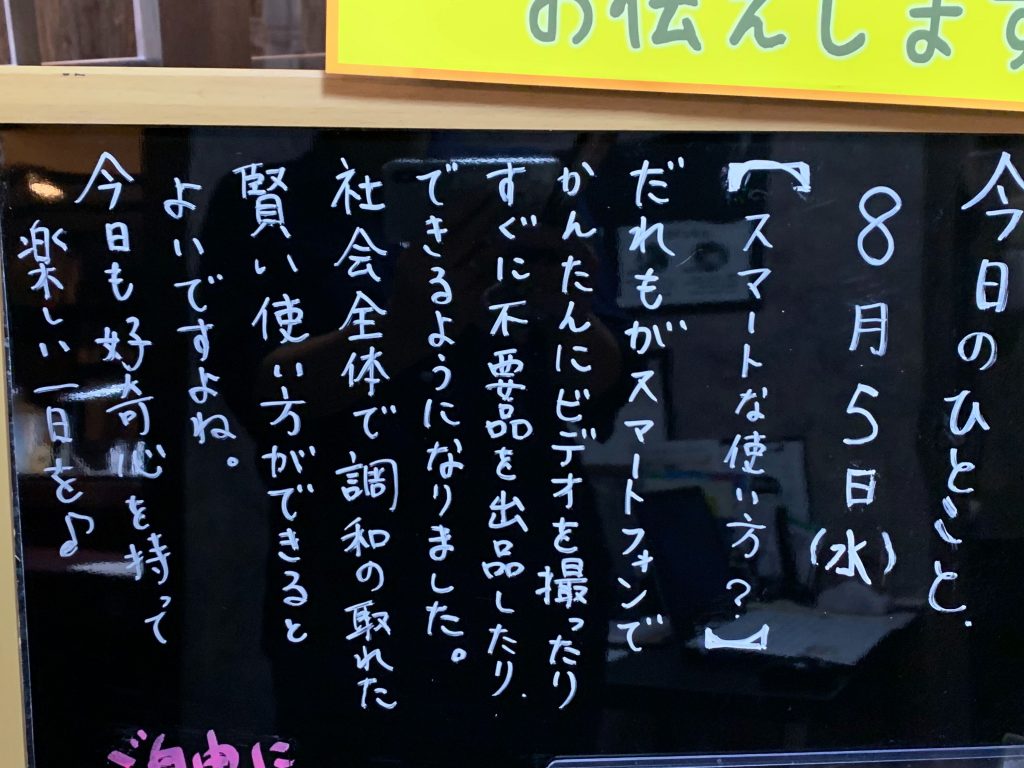 お伝えします
今日のひとこと
8月5日(水)
【スマートな使い方?】
だれもがスマートフォンで
かんたんにビデオを撮ったり
すぐに不要品を出品したり
できるようになりました。
社会全体で調和の取れた
賢い使い方ができると
よいですよね。
今日も好奇心を持って
楽しい一日を♪
ご自由に